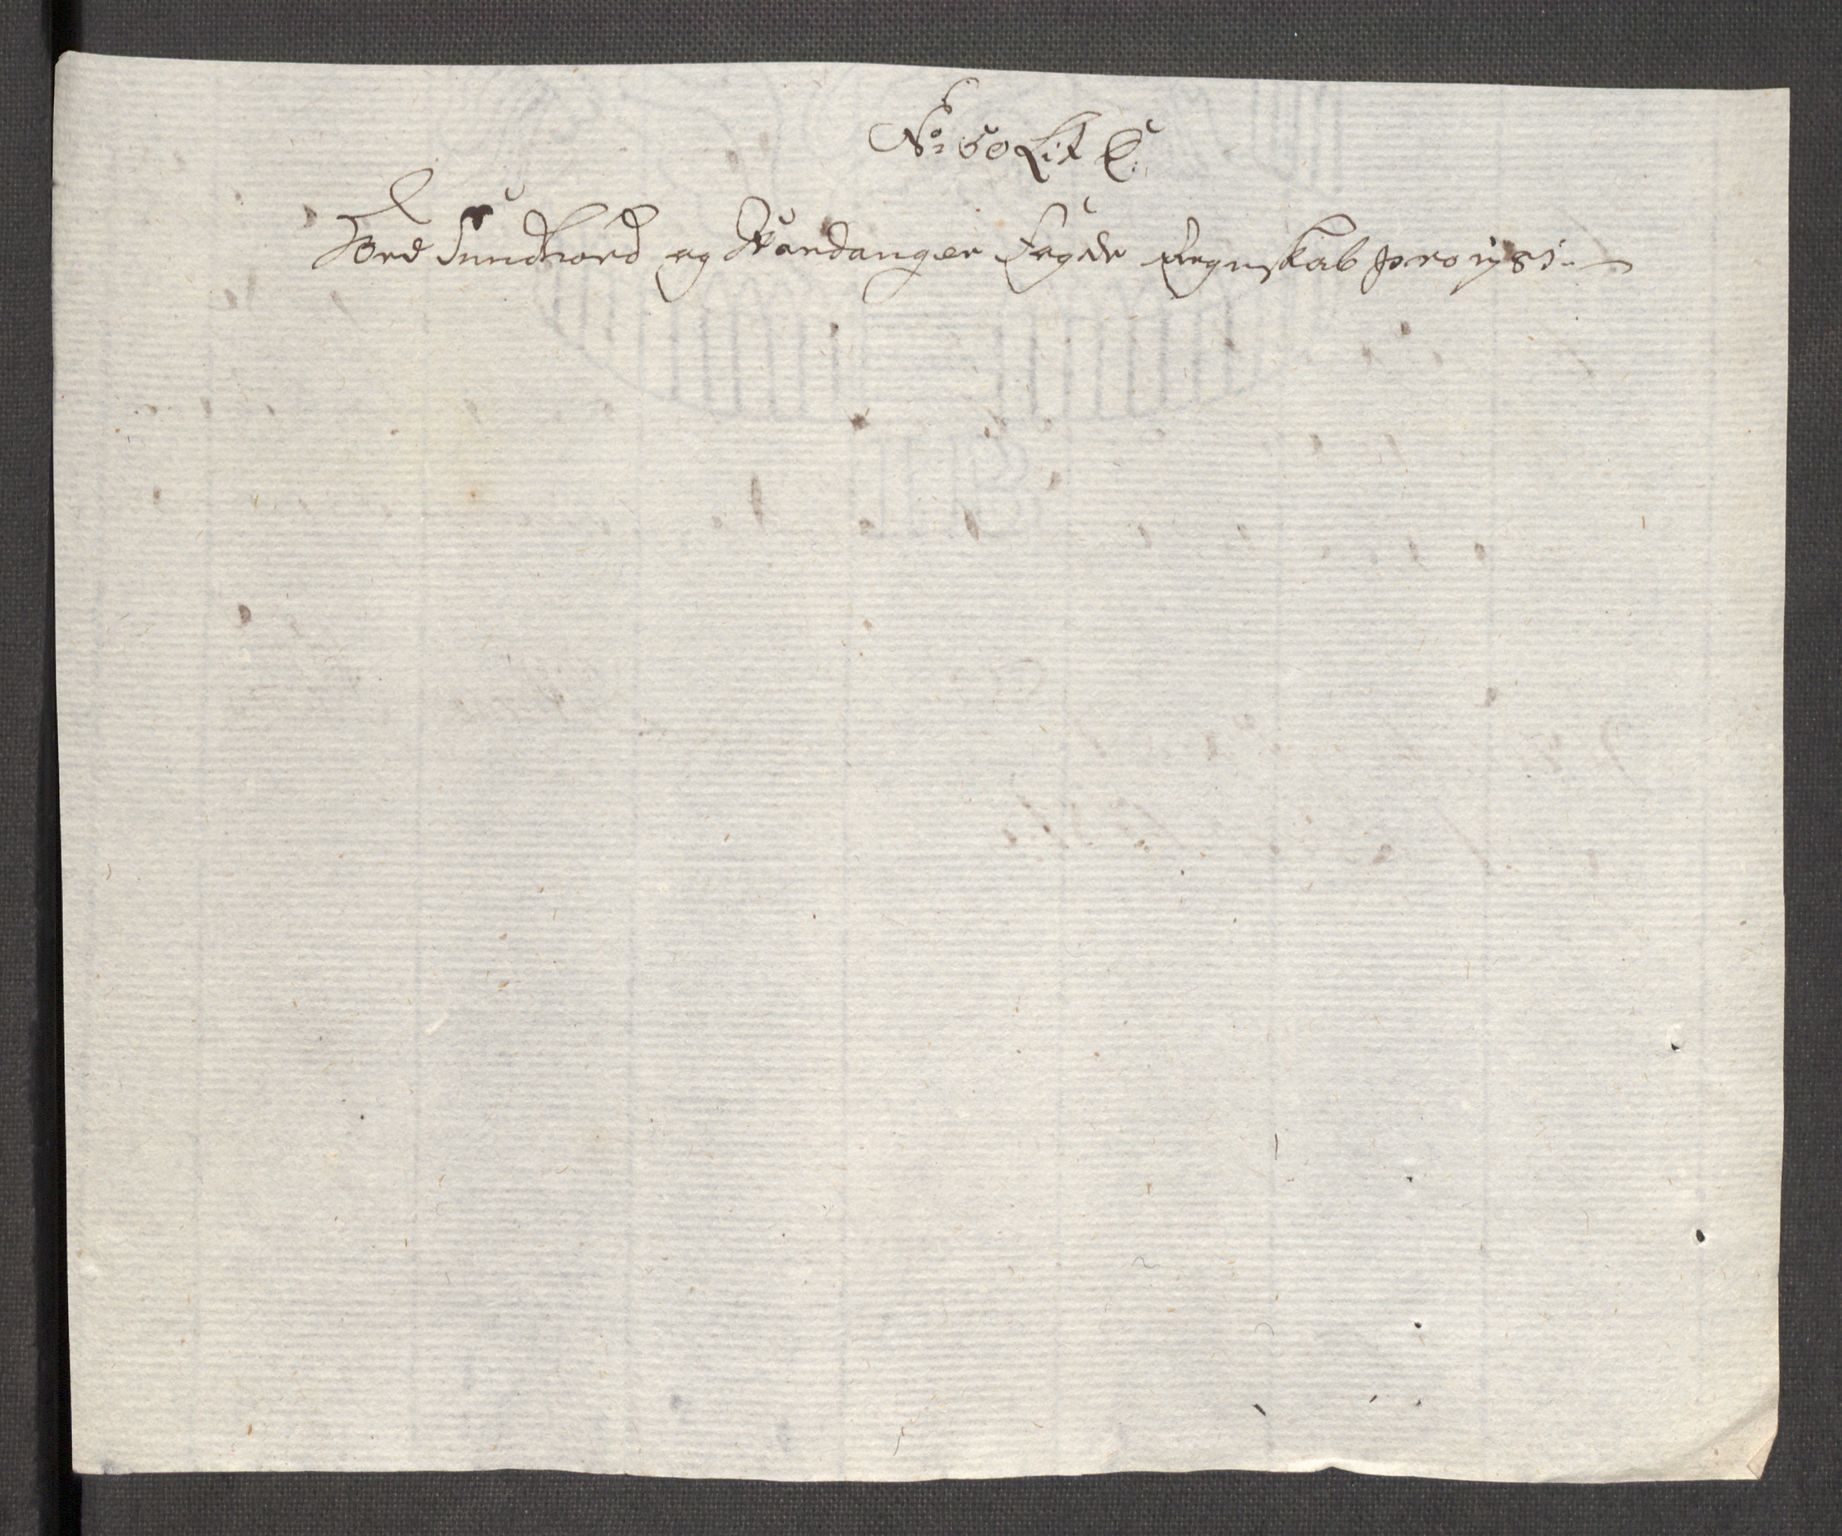 No: 50 Lit C:
Ved Sundhord og Hardanger Fogde Regnskab pro 1781.